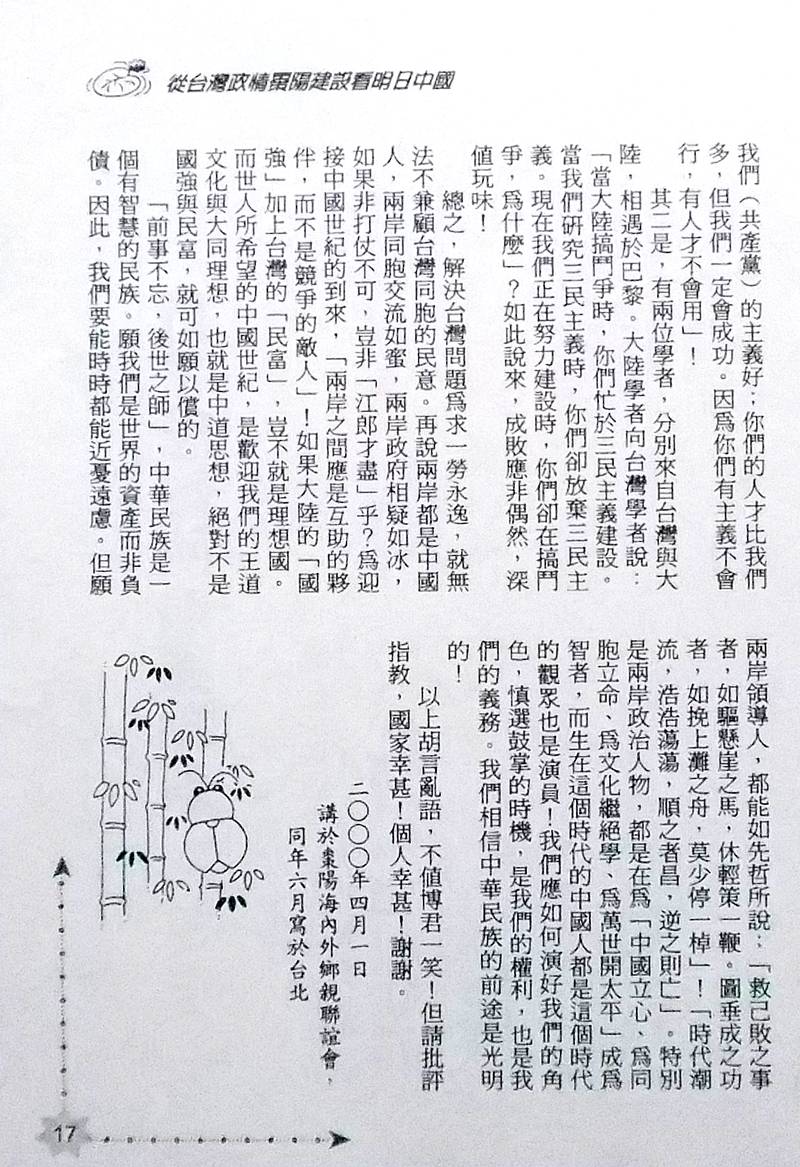 從台灣政情棗陽建設看明日中國
我們（共產黨）的主義好；你們的人才比我們
多，但我們一定會成功。因爲你們有主義不會
行，有人才不會用」！
其二是，有兩位學者，分別來自台灣與大
陸，相遇於巴黎。大陸學者向台灣學者說：
「當大陸搞鬥爭時，你們忙於三民主義建設。
當我們研究三民主義時，你們卻放棄三民主
義。現在我們正在努力建設時，你們卻在搞鬥
爭，爲什麼」？如此說來，成敗應非偶然，深
值玩味！
總之，解決台灣問題爲求一勞永逸，就無
法不兼顧台灣同胞的民意。再說兩岸都是中國
人，兩岸同胞交流如蜜，兩岸政府相疑如冰，
如果非打仗不可，豈非「江郎才盡」乎？爲迎
接中國世紀的到來，「兩岸之間應是互助的夥
伴，而不是競爭的敵人」！如果大陸的「國
強」加上台灣的「民富」，豈不就是理想國。
而世人所希望的中國世紀，是歡迎我們的王道
文化與大同理想，也就是中道思想，絕對不是
國強與民富，就可如願以償的。
「前事不忘，後世之師」，中華民族是一
個有智慧的民族。願我們是世界的資產而非負
債。因此，我們要能時時都能近憂遠慮。但願
兩岸領導人，都能如先哲所說：「救己敗之事
者，如驅懸崖之馬，休輕策一鞭。圖垂成之功
者，如挽上灘之舟，莫少停一棹」！「時代潮
流，浩浩蕩蕩，順之者昌，逆之則亡」。特別
是兩岸政治人物，都是在爲「中國立心、爲同
胞立命、爲文化繼絕學、爲萬世開太平」成爲
智者，而生在這個時代的中國人都是這個時代
的觀眾也是演員！我們應如何演好我們的角
色，慎選鼓掌的時機，是我們的權利，也是我
們的義務。我們相信中華民族的前途是光明
的！
以上胡言亂語，不值博君一笑！但請批評
指教，國家幸甚！個人幸甚！謝謝。
二〇〇〇年四月一日
講於棗陽海內外鄉親聯誼會，
同年六月寫於台北
17